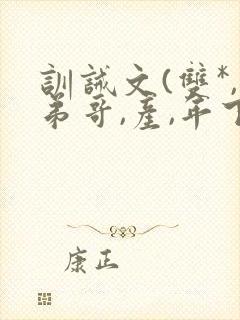 訓誡文(雙*,
弟哥,產,年下
康正